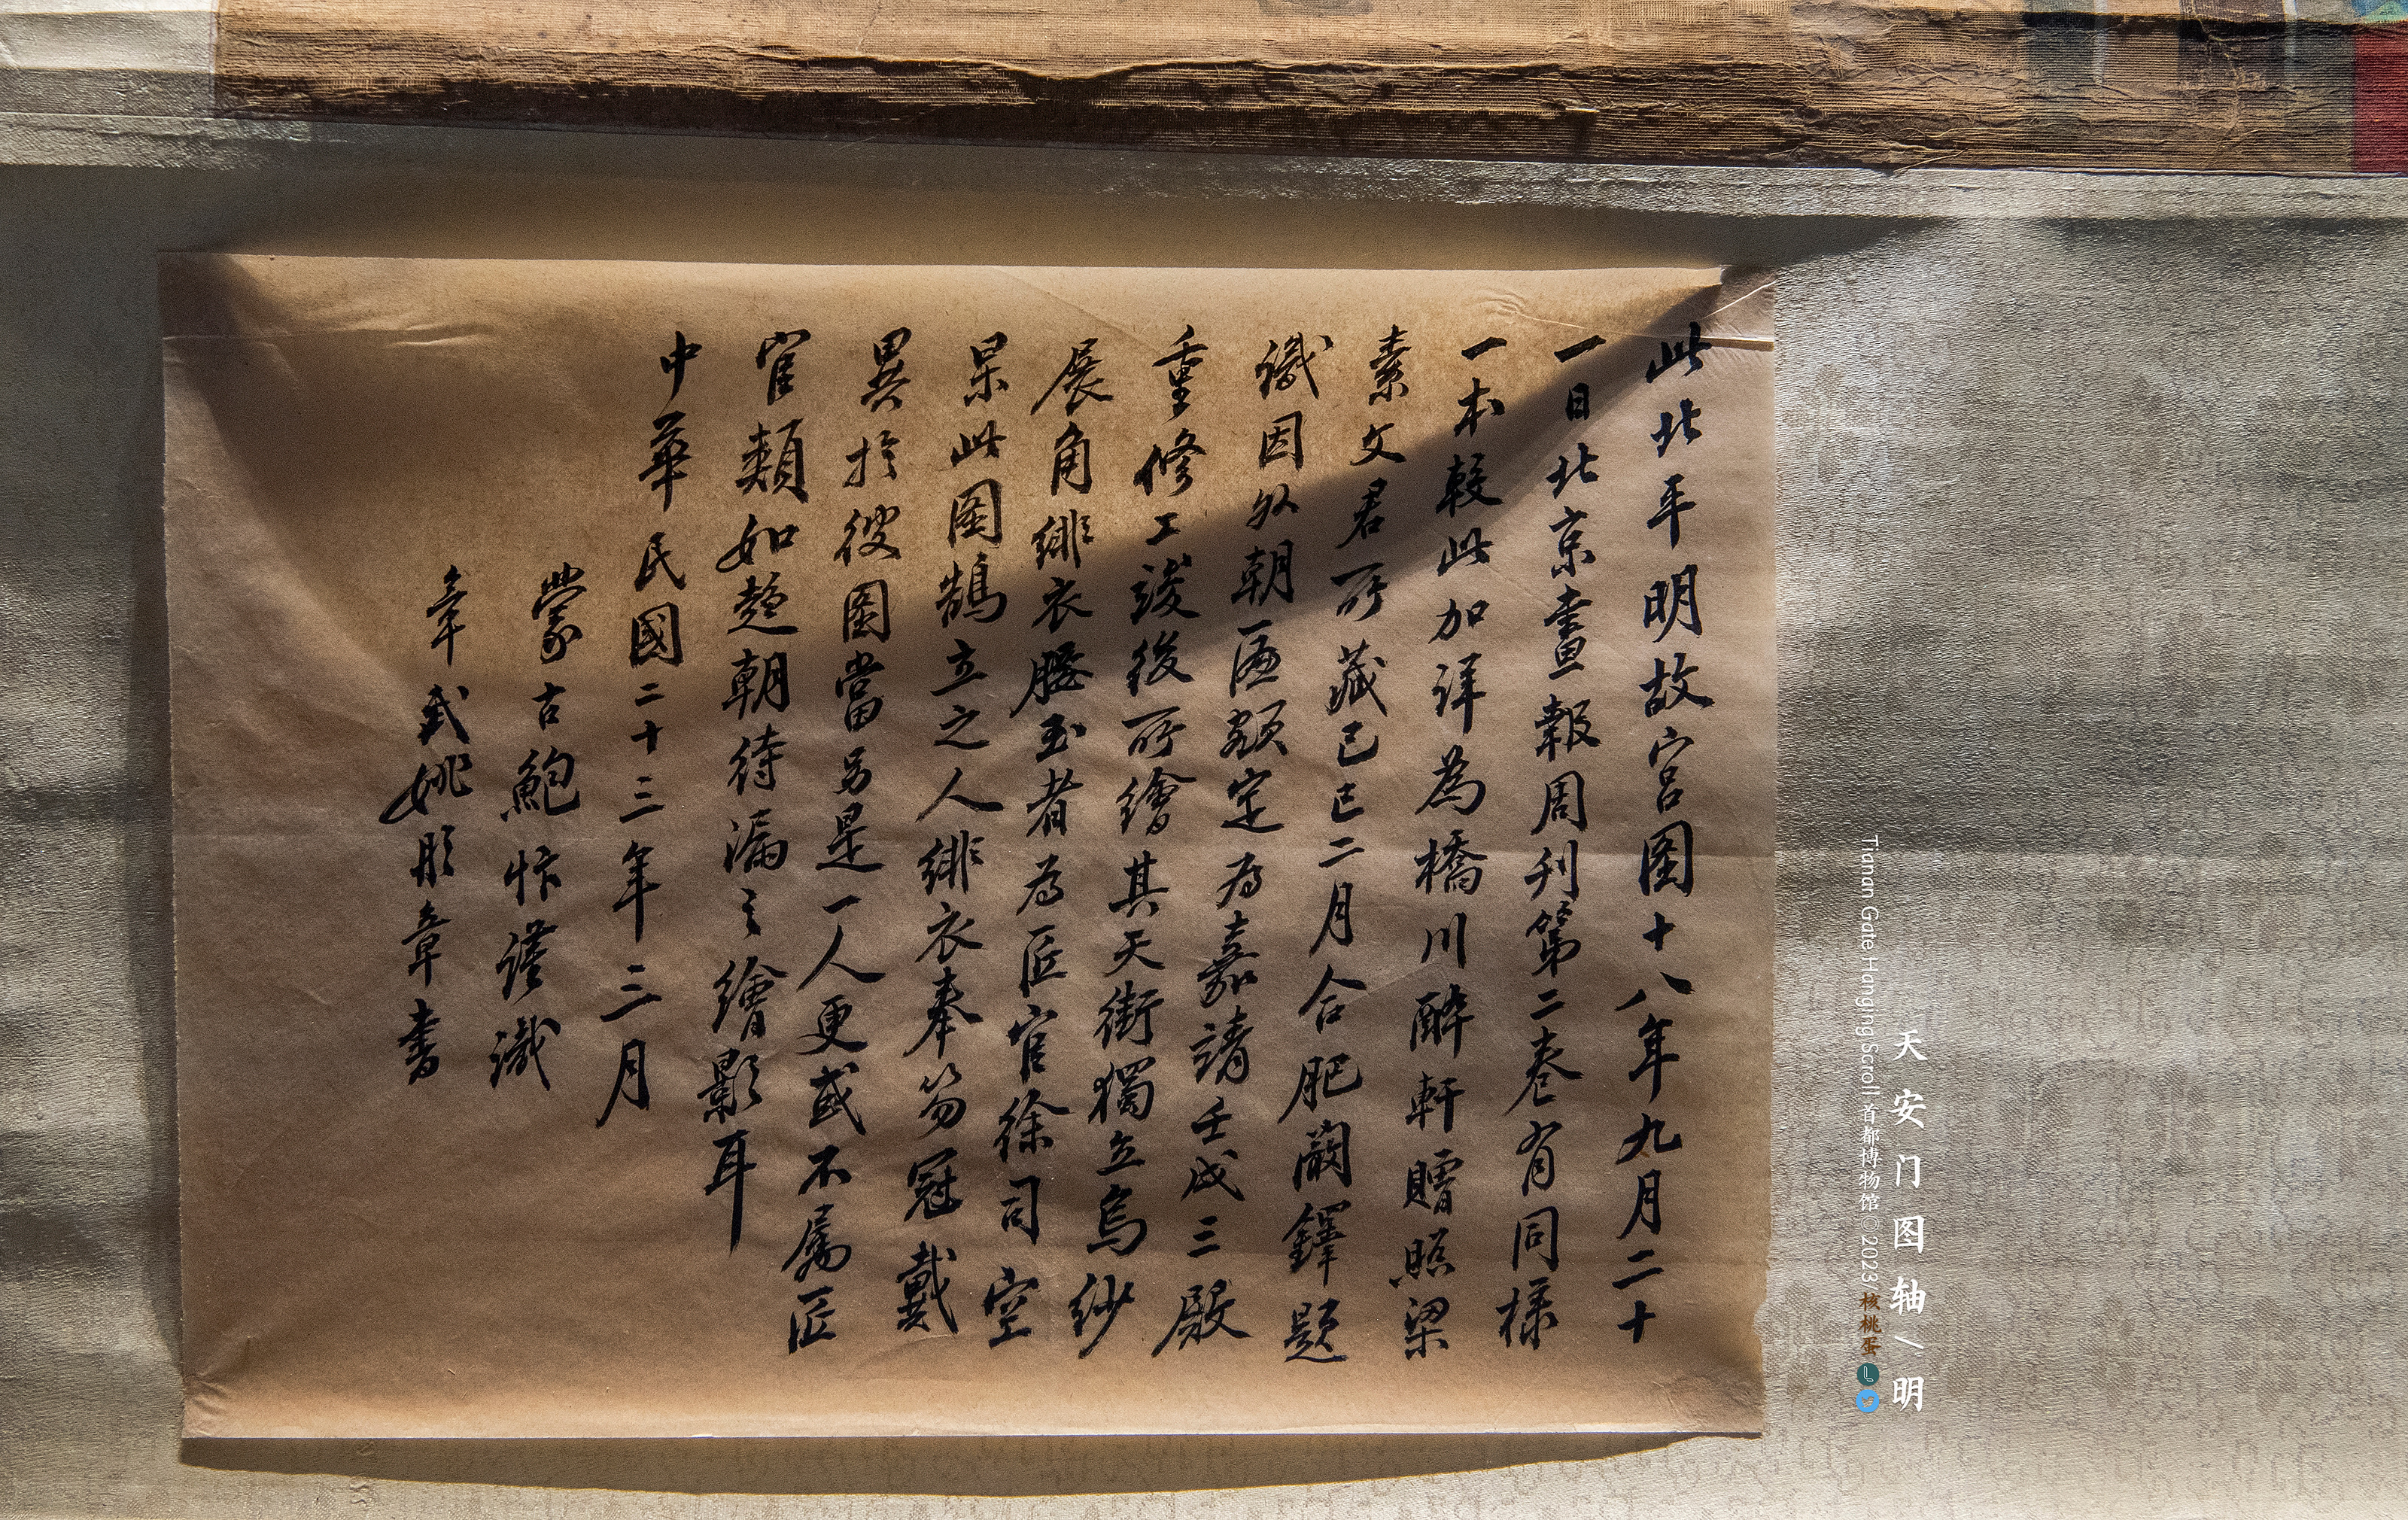 此北平明故宫图十八年九月二十
一日北京畫報周刊第二卷有同樣
一本較此加详為橋川醉軒贈照梁
素文君所藏己巳二月合肥闞鐸题
識因外朝匾额定为嘉請壬戌三殿
重修工竣後所繪其天街獨立烏纱
展角緋衣腰玉者为匠官徐司空
杲此图鵠立之人緋衣奉笏冠戴
異於彼圖當另是一人更或不属匠
官類如趋朝待漏之繪影耳
中華民國二十三年三月
蒙古鮑汴谨識
章武姚彤章書
天安门图轴/明
Tianan Gate Hanging Scroll 首都博物馆©2023/核桃蛋